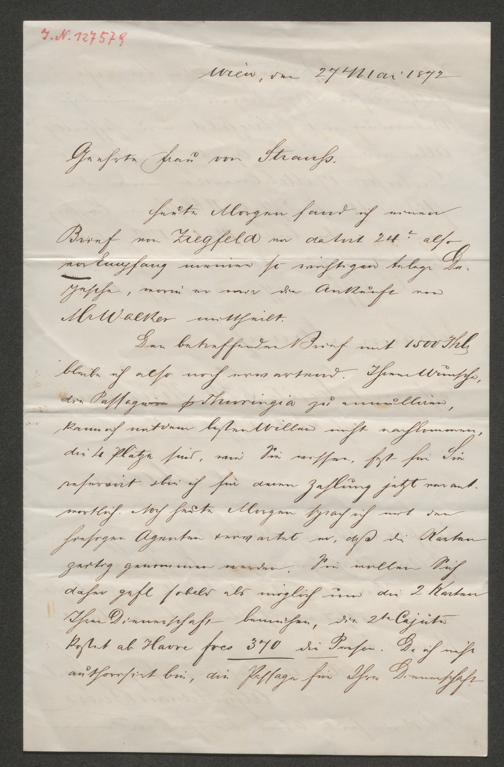 J.N. 127579
Wien, den 27 Mai 1872
Geehrte Frau von Strauss.
Heute Morgen fand ich einen
Brief von Ziegfeld vor datirt 24t also
vor Empfang meiner so wichtigen telegr De-
pesche, worin er mir die Ankunft von
Mr Walker mittheilt.
Den betreffenden Brief mit 1500 Thl
bleibe ich also noch erwartend. Ihrem Wunsche,
die Passagen pr Thuringia zu annulliren,
kann ich mit dem besten Willen nicht nachkommen,
die 4 Plätze sind, wie Sie wissen, fest für Sie
reservirt & bin ich für deren Zahlung jetzt verant-
wortlich. Noch heute Morgen sprach ich mit dem
hiesigen Agenten & erwartet er, daß die Karten
genommen werden. Sie wollen Sich
daher gefl sobald als möglich um die 2 Karten
Ihrer Dienerschaft bemühen, die 2te Cajüte
kostet ab Havre frcs 370 die Person. Da ich nicht
authorisirt bin, die Passage für Ihre Dienerschaft